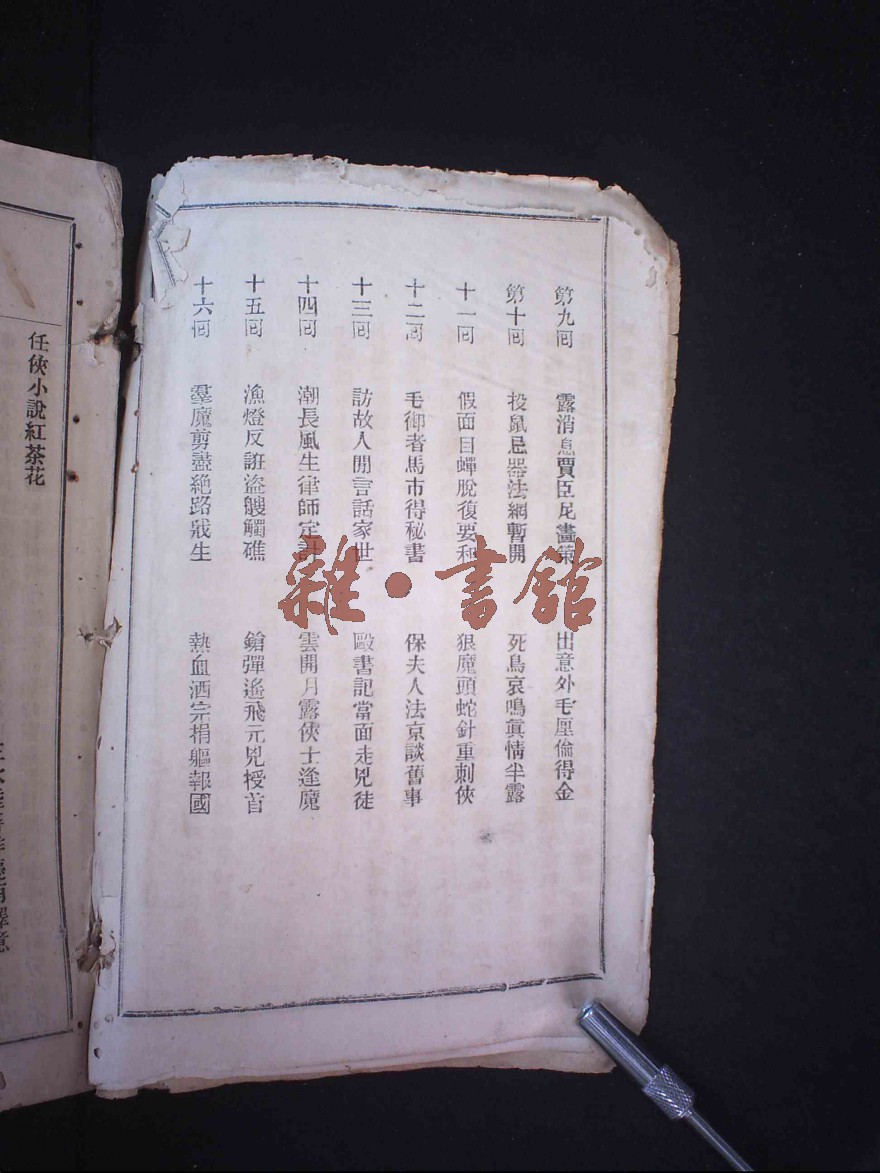 第九回 露消息賈臣尼畫策 出意外毛厘倫得金
第十回 投鼠忌器法網暫開 死鳥哀鳴眞情半露
十一回 假面目蟬脫復要利 狠魔頭蛇針重刺俠
十二回 毛御者馬市得秘書 保夫人法京談舊事
十三回 訪故人閒言話家世 毆書記當面走兇徒
十四回 潮長風生律師定計 雲開月露俠士逢魔
十五回 漁燈反誑盜艘觸礁 鎗彈遙飛元兇授首
十六回 羣魔剪盡絕路戕生 熱血洒宗捐軀報國
任俠小說紅茶花
雜·書館